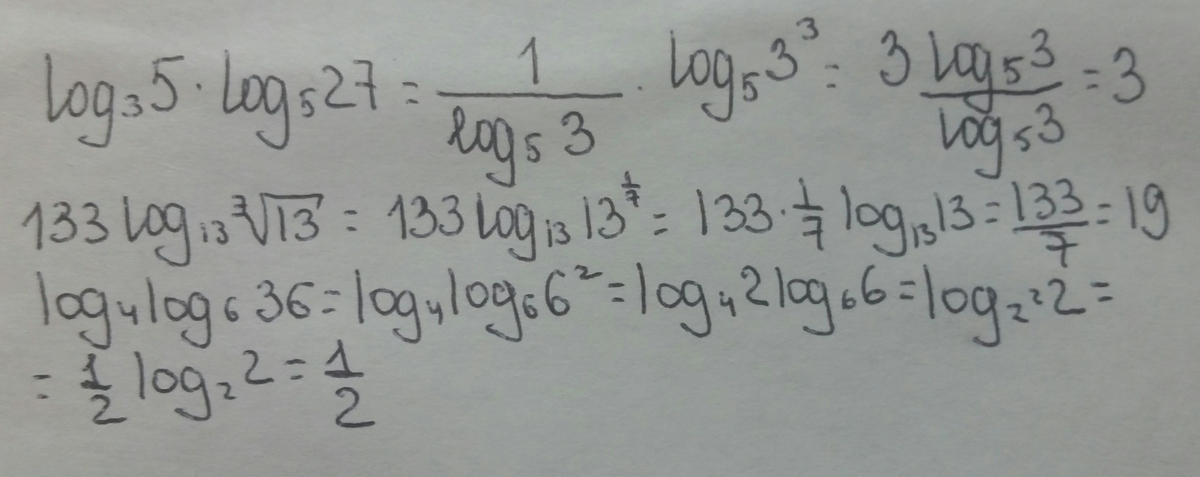 log₃5 · log₅27 = 1/log₅3 · log₅3³ = 3 log₅3/log₅3 = 3
133 log₁₃ ⁷√13 = 133 log₁₃ 13^(1/7) = 133 · 1/7 log₁₃13 = 133/7 = 19
log₄log₆36 = log₄log₆6² = log₄2log₆6 = log₂²2 =
= 1/2 log₂2 = 1/2